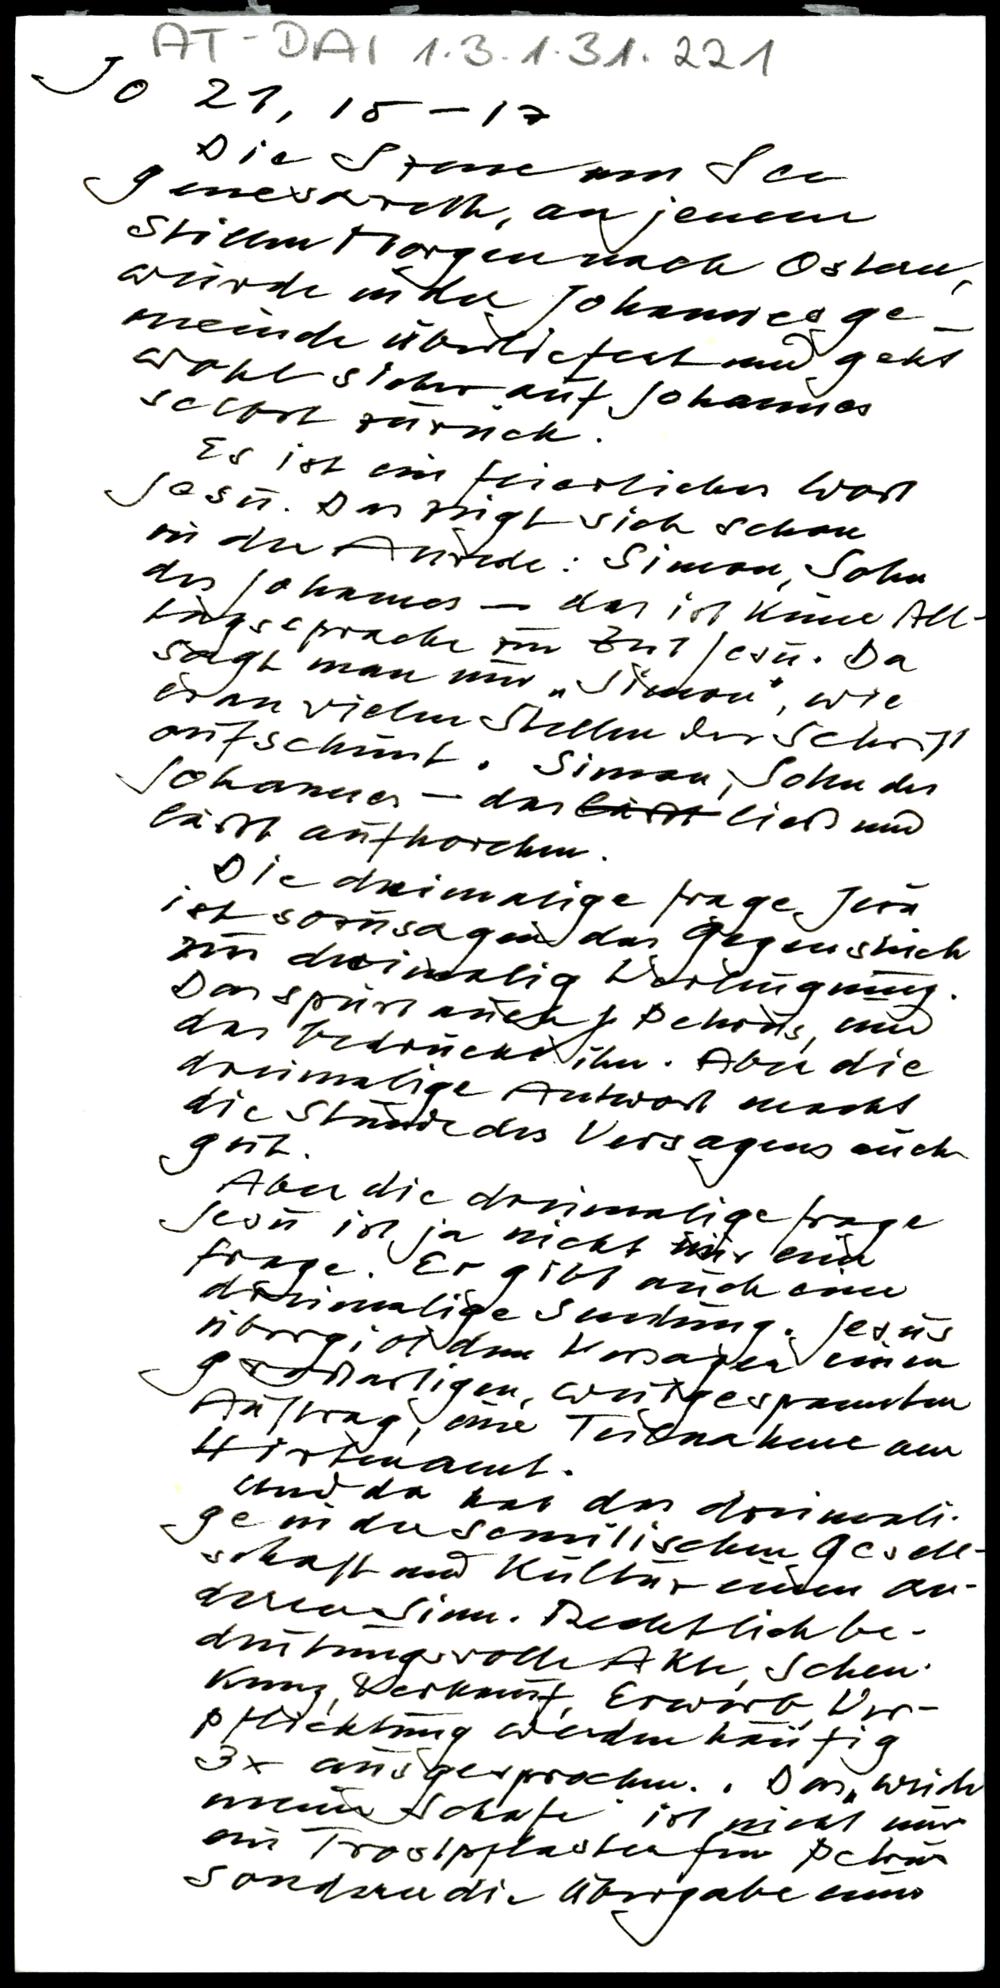 AT-DAI 1.3.1.31.221
Jo 21, 15-17
Die Szene am See
Genesareth, an jenem
stillen Morgen nach Ostern,
wurde in der Johannesge-
meinde überliefert und geht
wohl sicher auf Johannes
selbst zurück.
Es ist ein feierliches Wort
Jesu. Das zeigt sich schon
in der Anrede: Simon, Sohn
des Johannes - das ist keine All-
tagssprache zur Zeit Jesu. Da
sagt man nur "Simon", wie
er an vielen Stellen der Schrift
aufscheint. Simon, Sohn des
Johannes - das lässt ließ und
lässt aufhorchen.
Die dreimalige Frage Jesu
ist sozusagen das Gegenstück
zur dreimalig Verleugnung.
Das spürt auch Petrus, und
das bedrückt ihn. Aber die
dreimalige Antwort macht
die Stunde des Versagens auch
gut.
Aber die dreimalige Frage
Jesu ist ja nicht nur eine
Frage. Er gibt auch eine
dreimalige Sendung. Jesus
übergibt dem Versager einen
großartigen, weitgespannten
Auftrag, eine Teilnahme am
Hirtenamt.
Und da hat das dreimali-
ge in der semitischen Gesell-
schaft und Kultur einen an-
deren Sinn. Rechtlich be-
deutungsvolle Akte, Schen-
kung, Verkauf, Erwerb, Ver-
pflichtung werden häufig
3x ausgesprochen.. Das "weide
meine Schafe" ist nicht nur
ein Trostpflaster für Petrus
sondern die Übergabe eines